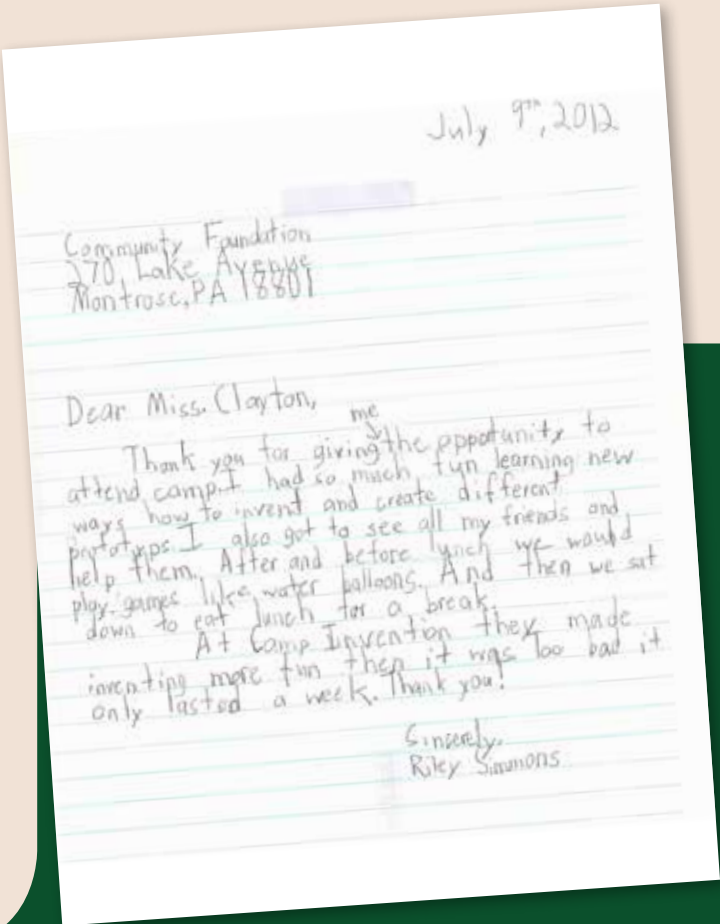 July 9th, 2012
Community Foundation
270 Lake Avenue
Montrose, PA 18801
Dear Miss. Clayton,
me
Thank you for giving the oppotunity to
attend camp. I had so much fun learning new
ways how to invent and create different
prototyps. I also got to see all my friends and
help them. After and before lunch we would
play games like water balloons. And then we sat
down to eat lunch for a break.
At Camp Invention they made
inventing more fun then it was too bad it
only lasted a week. Thank you!
Sincerely,
Riley Simmons